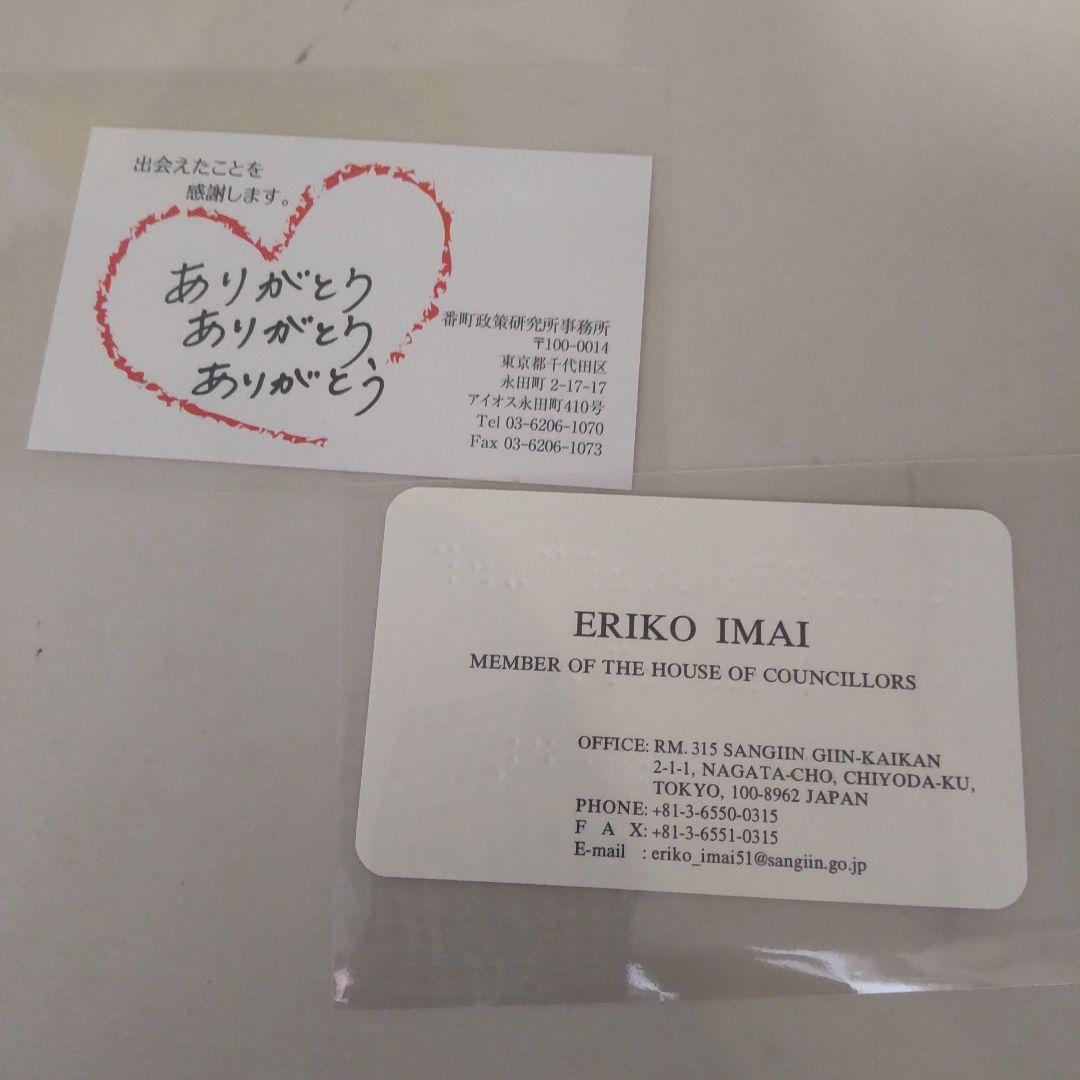 出会えたことを
感謝します。
ありがとう
ありがとう、
ありがとう
番町政策研究所事務所
〒100-0014
東京都千代田区
永田町 2-17-17
アイオス永田町410号
Tel 03-6206-1070
Fax 03-6206-1073
ERIKO IMAI
MEMBER OF THE HOUSE OF COUNCILLORS
OFFICE: RM. 315 SANGIIN GIIN-KAIKAN
2-1-1, NAGATA-CHO, CHIYODA-KU,
TOKYO, 100-8962 JAPAN
PHONE: +81-3-6550-0315
F A X: +81-3-6551-0315
E-mail : eriko_imai51@sangiin.go.jp